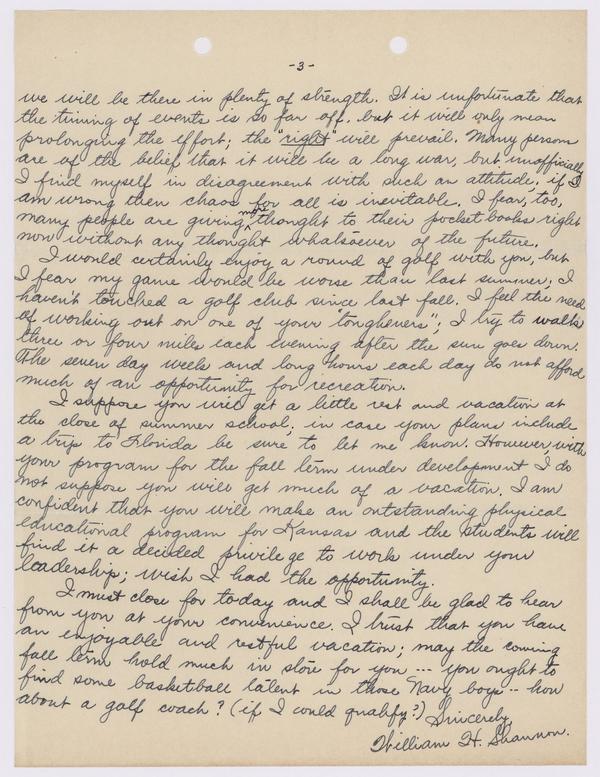 -3-
we will be there in plenty of strength. It is unfortunate that
the timing of events is so far off.. but it will only mean
prolonging the effort; the "right" will prevail. Many person
are of the belief that it will be a long war, but unofficially
I find myself in disagreement with such an attitude. if I
am wrong then chaos for all is inevitable. I fear, too,
many people are giving more thought to their pocket books right
now without any thought whatsoever of the future.
I would certainly enjoy a round of golf with you, but
I fear my game would be worse than last summer; I
haven't touched a golf club since last fall. I feel the need
of working out on one of your "tougheners"; I try to walk
three or four miles each evening after the sun goes down.
The seven day weeks and long hours each day do not afford
much of an opportunity for recreation.
I suppose you will get a little rest and vacation at
the close of summer school; in case your plans include
a trip to Florida be sure to let me know. However, with
your program for the fall term under development I do
not suppose you will get much of a vacation. I am
confident that you will make an outstanding physical
educational program for Kansas and the students will
find it a decided privilege to work under your
leadership; wish I had the opportunity.
I must close for today and I shall be glad to hear
from you at your convenience. I trust that you have
an enjoyable and restful vacation; may the coming
fall term hold much in store for you --- you ought to
find some basketball talent in those Navy boys -- how
about a golf coach? (if I could qualify?)
Sincerely,
William H. Shannon.